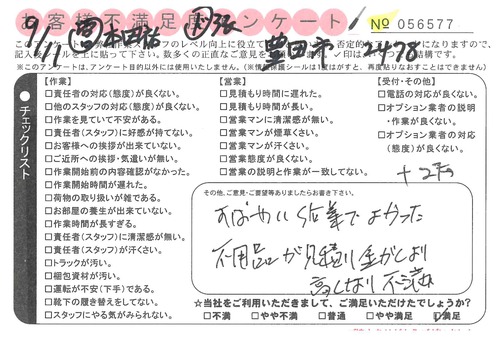 お客様不満足度アンケート
No 056577
9/11
豊田市
478
チェックリスト
【作業】
□責任者の対応(態度)が良くない。
□他のスタッフの対応(態度)が良くない。
□作業を見ていて不安がある。
□責任者(スタッフ)に好感が持てない。
□お客様への挨拶が出来ていない。
□ご近所への挨拶・気遣いが無い。
□作業開始前の内容確認がなかった。
□作業開始時間が遅れた。
□荷物の取り扱いが雑である。
□お部屋の養生が出来ていない。
□作業時間が長すぎる。
□責任者(スタッフ)に清潔感が無い。
□責任者(スタッフ)が汗くさい。
□トラックが汚い。
□梱包資材が汚い。
□運転が不安(下手)である。
□靴下の履き替えをしてない。
□スタッフにやる気がみられない。
【営業】
□見積もり時間に遅れた。
□見積もり時間が長い。
□営業マンに清潔感が無い。
□営業マンが煙草くさい。
□営業マンが汗くさい。
□営業態度が良くない。
□営業の説明と作業が一致してない。
【受付・その他】
□電話の対応が良くない。
□オプション業者の説明
・作業が良くない。
□オプション業者の対応
(態度)が良くない。
その他、ご意見・ご要望等ありましたらお書き下さい。
すばやい作業でよかった
不用品が見積り金がくより
高くなり不満
☆当社をご利用いただきまして、ご満足いただけたでしょうか?
□不満 □やや不満 □普通 □やや満足 □満足